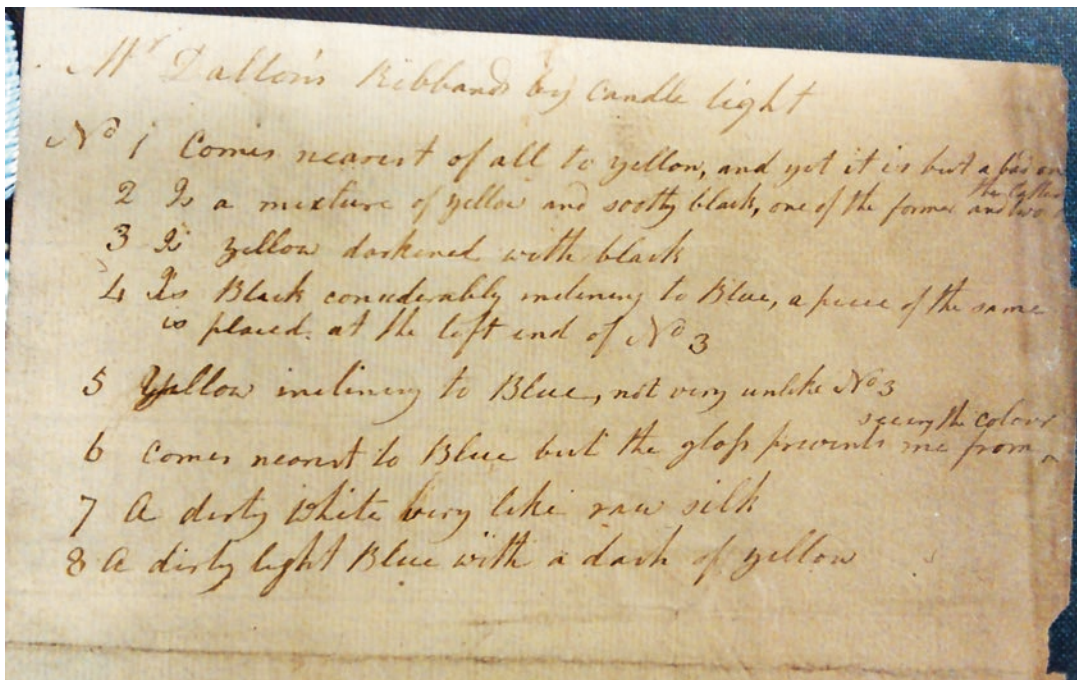 Mr Dalton's Ribbands by Candle light
No 1 Comes nearest of all to yellow, and yet it is but a bad one
2 Is a mixture of yellow and sooty black, one of the former and two
the latter
3 Is Yellow darkened with black
4 Is Black considerably inclining to Blue, a piece of the same
is placed at the left end of No 3
5 Yellow inclining to Blue, not very unlike No 3
seeing the colour
6 Comes nearest to Blue but the gloss prevents me from
7 A dirty White very like raw silk
8 A dirty light Blue with a dash of yellow